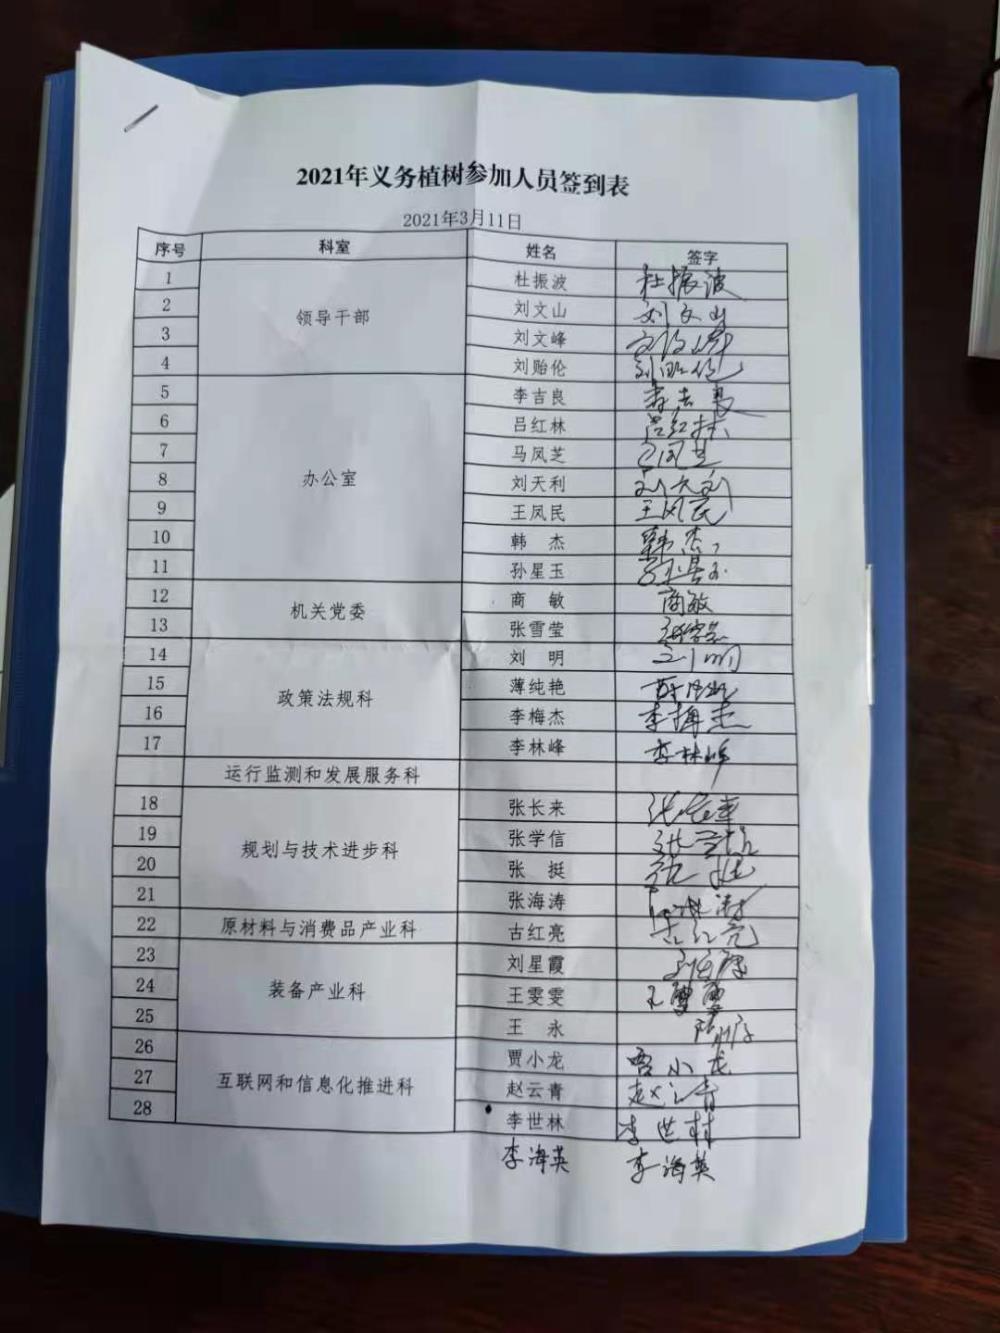 2021年义务植树参加人员签到表
2021年3月11日
序号 科室 姓名 签字
1 领导干部 杜振波 杜振波
2 刘文山 刘文山
3 刘文峰
4 刘贻伦
5 办公室 李吉良
6 吕红林 吕红林
7 马凤芝
8 刘天利 刘天利
9 王凤民 王凤民
10 韩 杰 韩杰
11 孙星玉
12 机关党委 商 敏 商敏
13 张雪莹
14 政策法规科 刘 明 刘明
15 薄纯艳
16 李梅杰 李梅杰
17 李林峰 李林峰
运行监测和发展服务科
18 规划与技术进步科 张长来
19 张学信
20 张 挺
21 张海涛
22 原材料与消费品产业科 古红亮 古红亮
23 装备产业科 刘星霞
24 王雯雯 王雯雯
25 王 永
26 互联网和信息化推进科 贾小龙 贾小龙
27 赵云青 赵云青
28 李世林 李世林
李海英 李海英